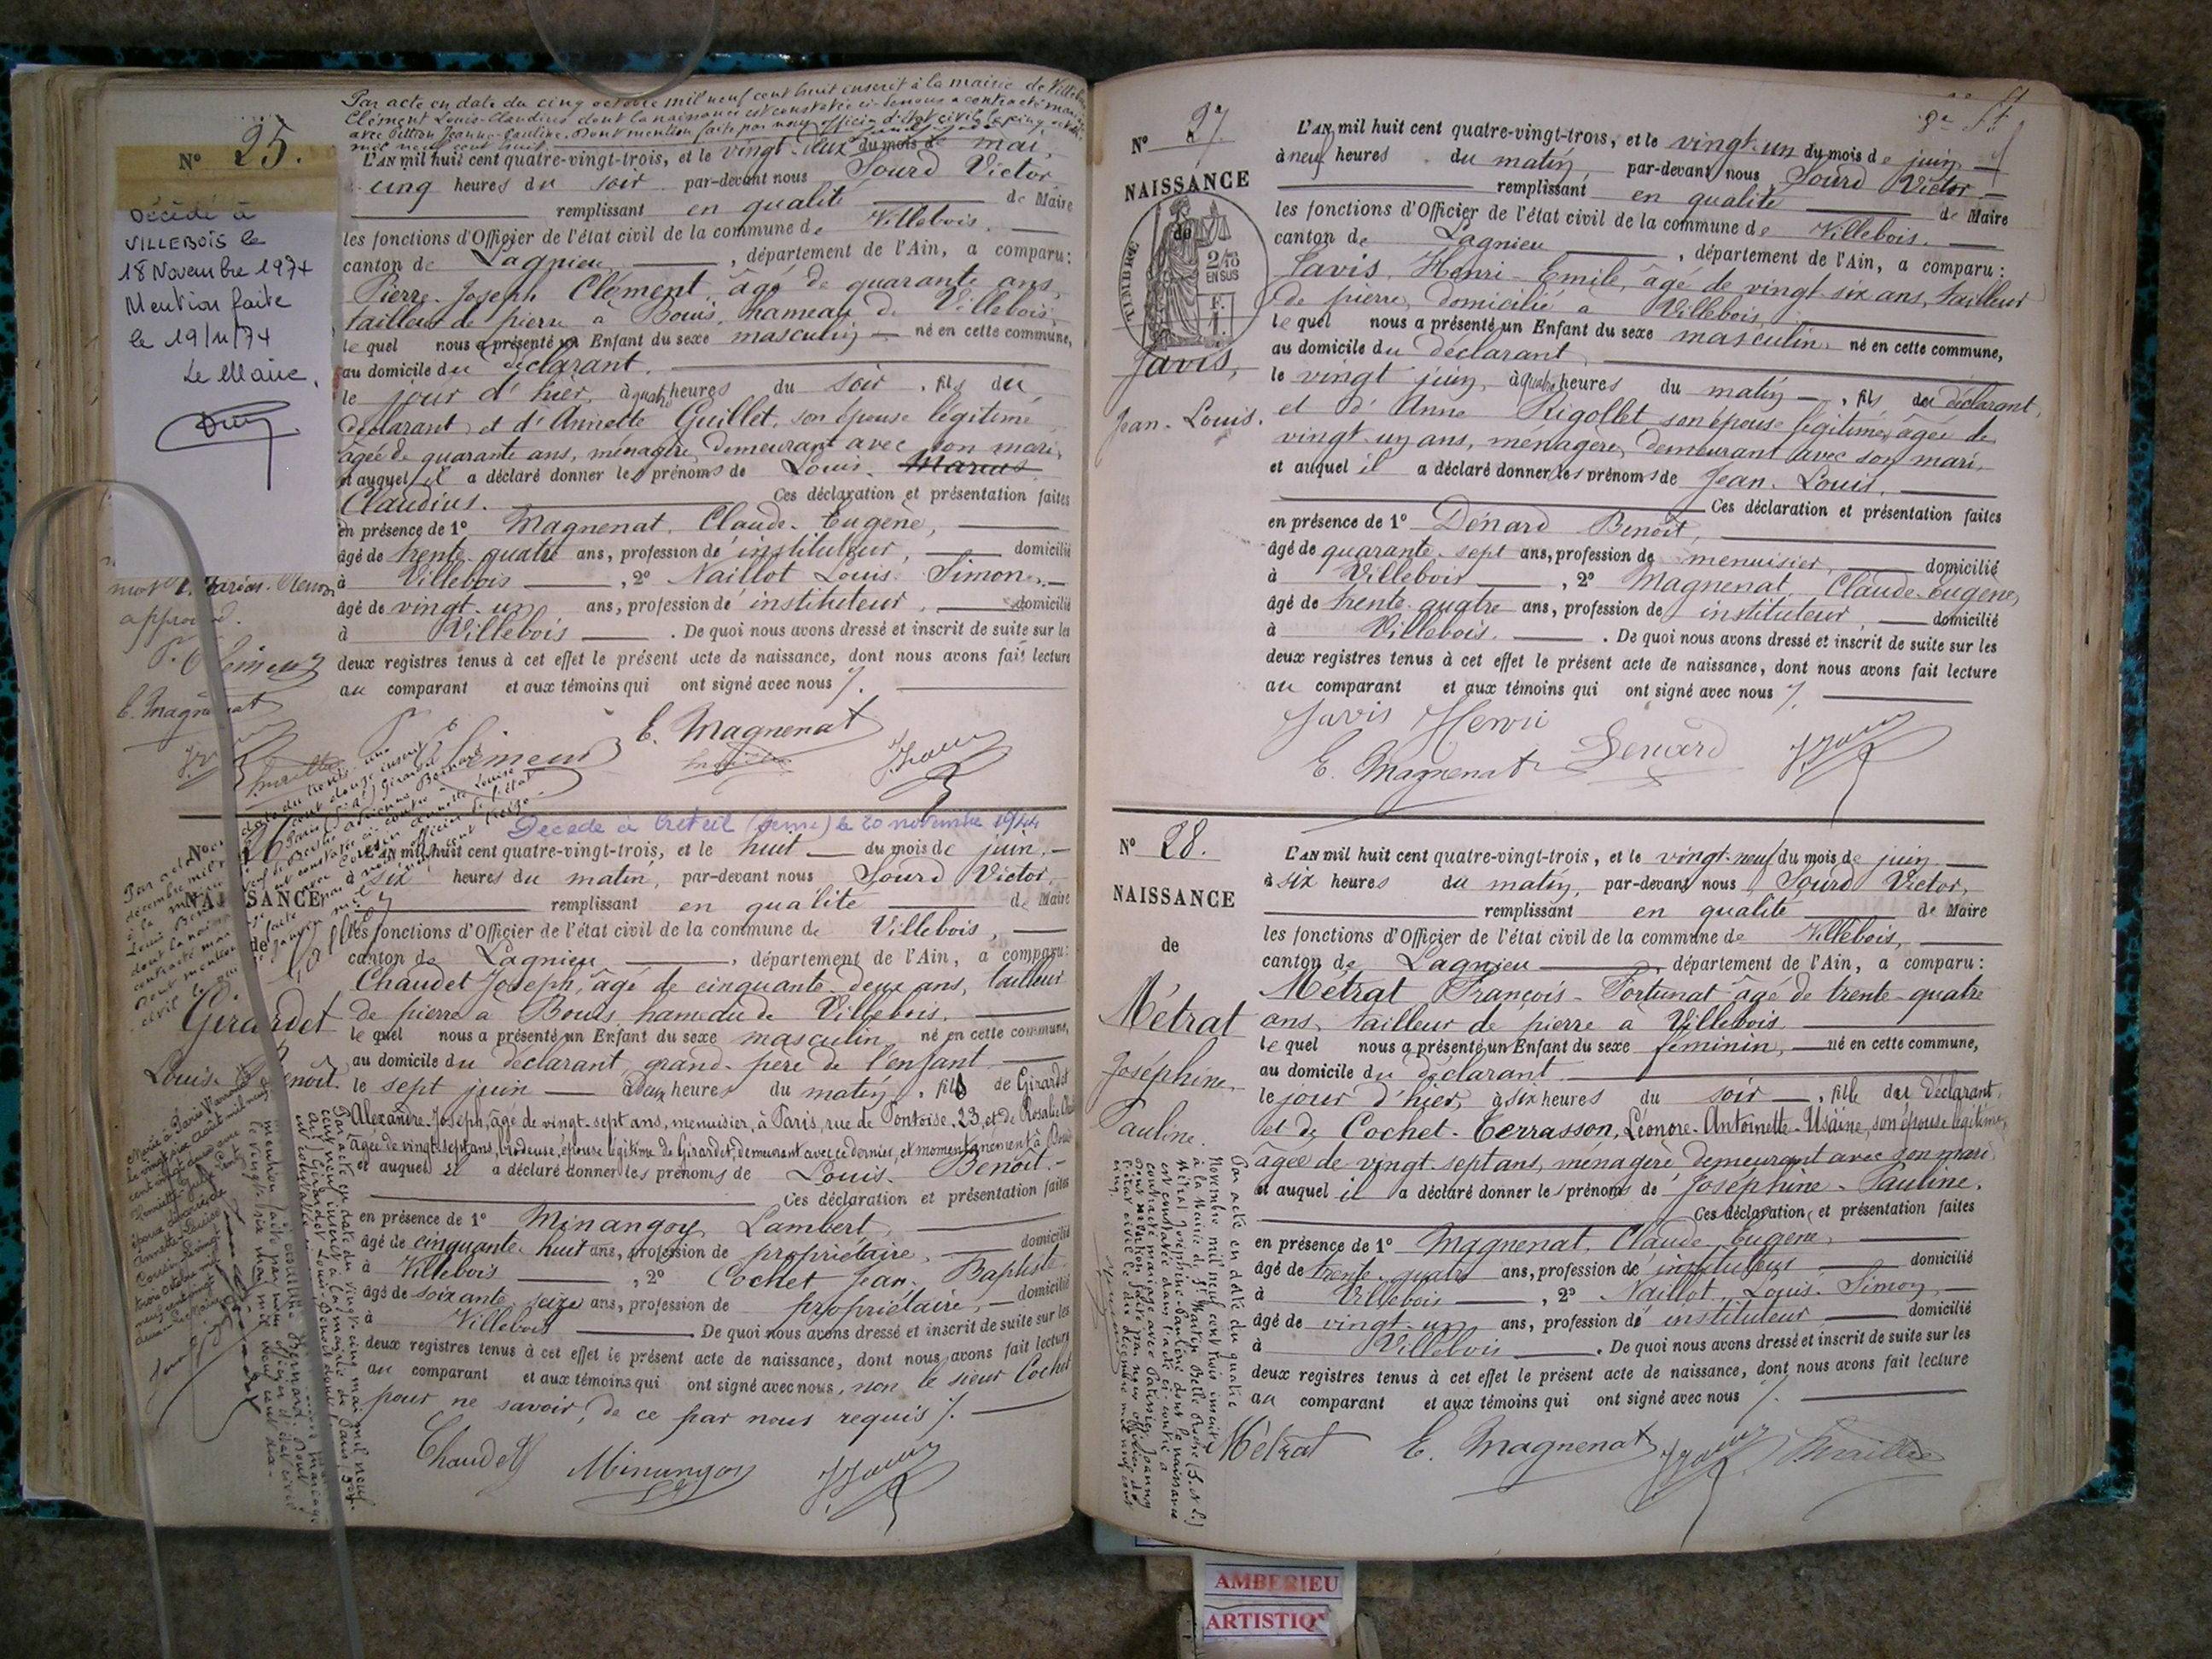 Par acte en date du cinq octobre mil neuf cent huit inscrit à la mairie de Villebois
Clément Louis-Claudius dont la naissance est constatée ci-dessous a contracté
avec Jeanne-Pauline. Dont mention faite par nous officier d'état civil le cinq
mil neuf cent huit.
N° 25.
Décédé à
VILLEBOIS le
18 Novembre 1974
Mention faite
le 19/11/74
Le Maire,
L'AN mil huit cent quatre-vingt-trois, et le vingt-deux du mois de mai,
cinq heures du soir par-devant nous Sourd Victor
remplissant en qualité de Maire
les fonctions d'Officier de l'état civil de la commune de Villebois.
canton de Lagnieu, département de l'Ain, a comparu:
Pierre-Joseph Clément, âgé de quarante ans,
tailleur de pierre à Bouis, hameau de Villebois,
lequel nous a présenté un Enfant du sexe masculin né en cette commune,
au domicile du déclarant.
le jour d'hier, à quatre heures du soir, fils du
déclarant et d'Annette Guillet, son épouse légitime
âgée de quarante ans, ménagère, demeurant avec son mari,
et auquel il a déclaré donner les prénoms de Louis Marius
Claudius. Ces déclaration et présentation faites
en présence de 1° Magnenat, Claude-Eugène,
âgé de trente-quatre ans, profession de instituteur, domicilié
à Villebois, 2° Naillot Louis Simon,
âgé de vingt-un ans, profession de instituteur, domicilié
à Villebois. De quoi nous avons dressé et inscrit de suite sur les
deux registres tenus à cet effet le présent acte de naissance, dont nous avons fait lecture
au comparant et aux témoins qui ont signé avec nous /.
approuvé.
P. Clément
E. Magnenat
P. Clément E. Magnenat
Décédé à Créteil (Seine) le 20 novembre 1944
N° 26
NAISSANCE
de
Girardet
Louis-Benoît.
L'AN mil huit cent quatre-vingt-trois, et le huit du mois de juin,
à six heures du matin, par-devant nous Sourd Victor,
remplissant en qualité de Maire
les fonctions d'Officier de l'état civil de la commune de Villebois,
canton de Lagnieu, département de l'Ain, a comparu:
Chaudet Joseph, âgé de cinquante-deux ans, tailleur
de pierre à Bouis, hameau de Villebois.
lequel nous a présenté un Enfant du sexe masculin né en cette commune,
au domicile du déclarant, grand-père de l'enfant
le sept juin à deux heures du matin, fils de Girardet
Alexandre-Joseph, âgé de vingt-sept ans, menuisier, à Paris, rue de Pontoise, 23, et de Rosalie
âgée de vingt-sept ans, brodeuse, épouse légitime de Girardet, demeurant avec ce dernier, et momentanément à Bouis
et auquel il a déclaré donner les prénoms de Louis-Benoît.
Ces déclaration et présentation faites
en présence de 1° Minangoy Lambert,
âgé de cinquante-huit ans, profession de propriétaire, domicilié
à Villebois, 2° Cochet Jean-Baptiste
âgé de soixante-seize ans, profession de propriétaire, domicilié
à Villebois. De quoi nous avons dressé et inscrit de suite sur les
deux registres tenus à cet effet le présent acte de naissance, dont nous avons fait lecture
au comparant et aux témoins qui ont signé avec nous, non le sieur Cochet
pour ne savoir, de ce par nous requis /.
Chaudet Minangoy
N° 27.
NAISSANCE
de
TIMBRE
2/10
EN SUS
F.
1.
Javis,
Jean-Louis.
L'AN mil huit cent quatre-vingt-trois, et le vingt-un du mois de juin
à neuf heures du matin par-devant nous Sourd Victor
remplissant en qualité de Maire
les fonctions d'Officier de l'état civil de la commune de Villebois.
canton de Lagnieu, département de l'Ain, a comparu:
Javis, Henri-Emile, âgé de vingt six ans, tailleur
de pierre, domicilié à Villebois,
lequel nous a présenté un Enfant du sexe masculin né en cette commune,
au domicile du déclarant,
le vingt juin, à quatre heures du matin, fils du déclarant,
et d'Anne Rigollet son épouse légitime, âgée de
vingt-un ans, ménagère, demeurant avec son mari,
et auquel il a déclaré donner les prénoms de Jean-Louis,
Ces déclaration et présentation faites
en présence de 1° Dénard Benoît,
âgé de quarante-sept ans, profession de menuisier, domicilié
à Villebois, 2° Magnenat, Claude-Eugène,
âgé de trente-quatre ans, profession de instituteur, domicilié
à Villebois. De quoi nous avons dressé et inscrit de suite sur les
deux registres tenus à cet effet le présent acte de naissance, dont nous avons fait lecture
au comparant et aux témoins qui ont signé avec nous /.
Javis Henri
E. Magnenat Denard
N° 28.
NAISSANCE
de
Métrat
Joséphine
Pauline.
L'AN mil huit cent quatre-vingt-trois, et le vingt-neuf du mois de juin
à six heures du matin, par-devant nous Sourd Victor,
remplissant en qualité de Maire
les fonctions d'Officier de l'état civil de la commune de Villebois,
canton de Lagnieu, département de l'Ain, a comparu:
Métrat François-Fortunat âgé de trente-quatre
ans, tailleur de pierre à Villebois
lequel nous a présenté un Enfant du sexe féminin, né en cette commune,
au domicile du déclarant
le jour d'hier, à six heures du soir, fille du déclarant,
et de Cochet-Terrasson, Léonore-Antoinette-Usaine, son épouse légitime,
âgée de vingt-sept ans, ménagère demeurant avec son mari
et auquel il a déclaré donner les prénoms de Joséphine-Pauline.
Ces déclaration et présentation faites
en présence de 1° Magnenat, Claude Eugène,
âgé de trente-quatre ans, profession de instituteur domicilié
à Villebois, 2° Naillot, Louis-Simon,
âgé de vingt-un ans, profession de instituteur domicilié
à Villebois. De quoi nous avons dressé et inscrit de suite sur les
deux registres tenus à cet effet le présent acte de naissance, dont nous avons fait lecture
au comparant et aux témoins qui ont signé avec nous /.
Métrat E. Magnenat
Par acte en date du quatre
Novembre mil neuf cent trois inscrit
AMBERIEU
ARTISTIQ